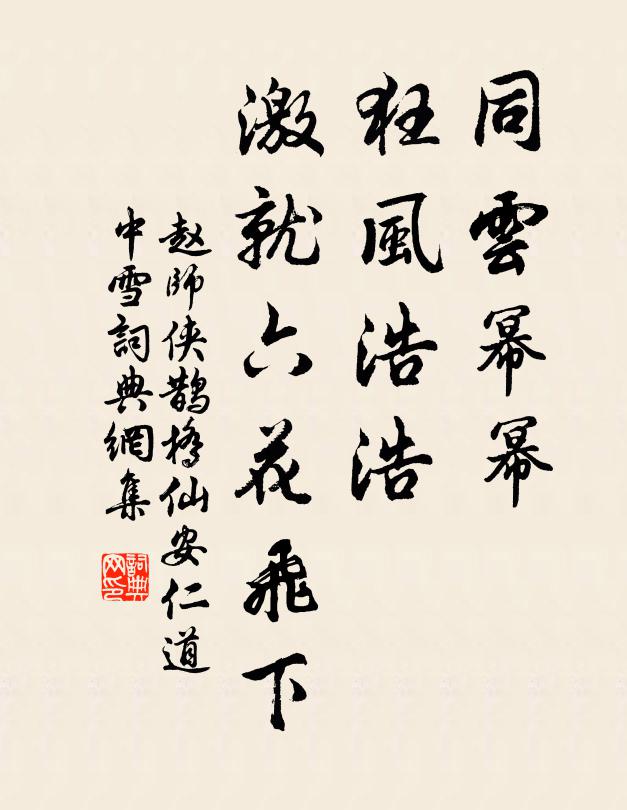 同雲幂幂
狂風浩浩
激就六花飛下
赵師侠鹊橋仙安仁道
中雪詞典網集
詞典
网印